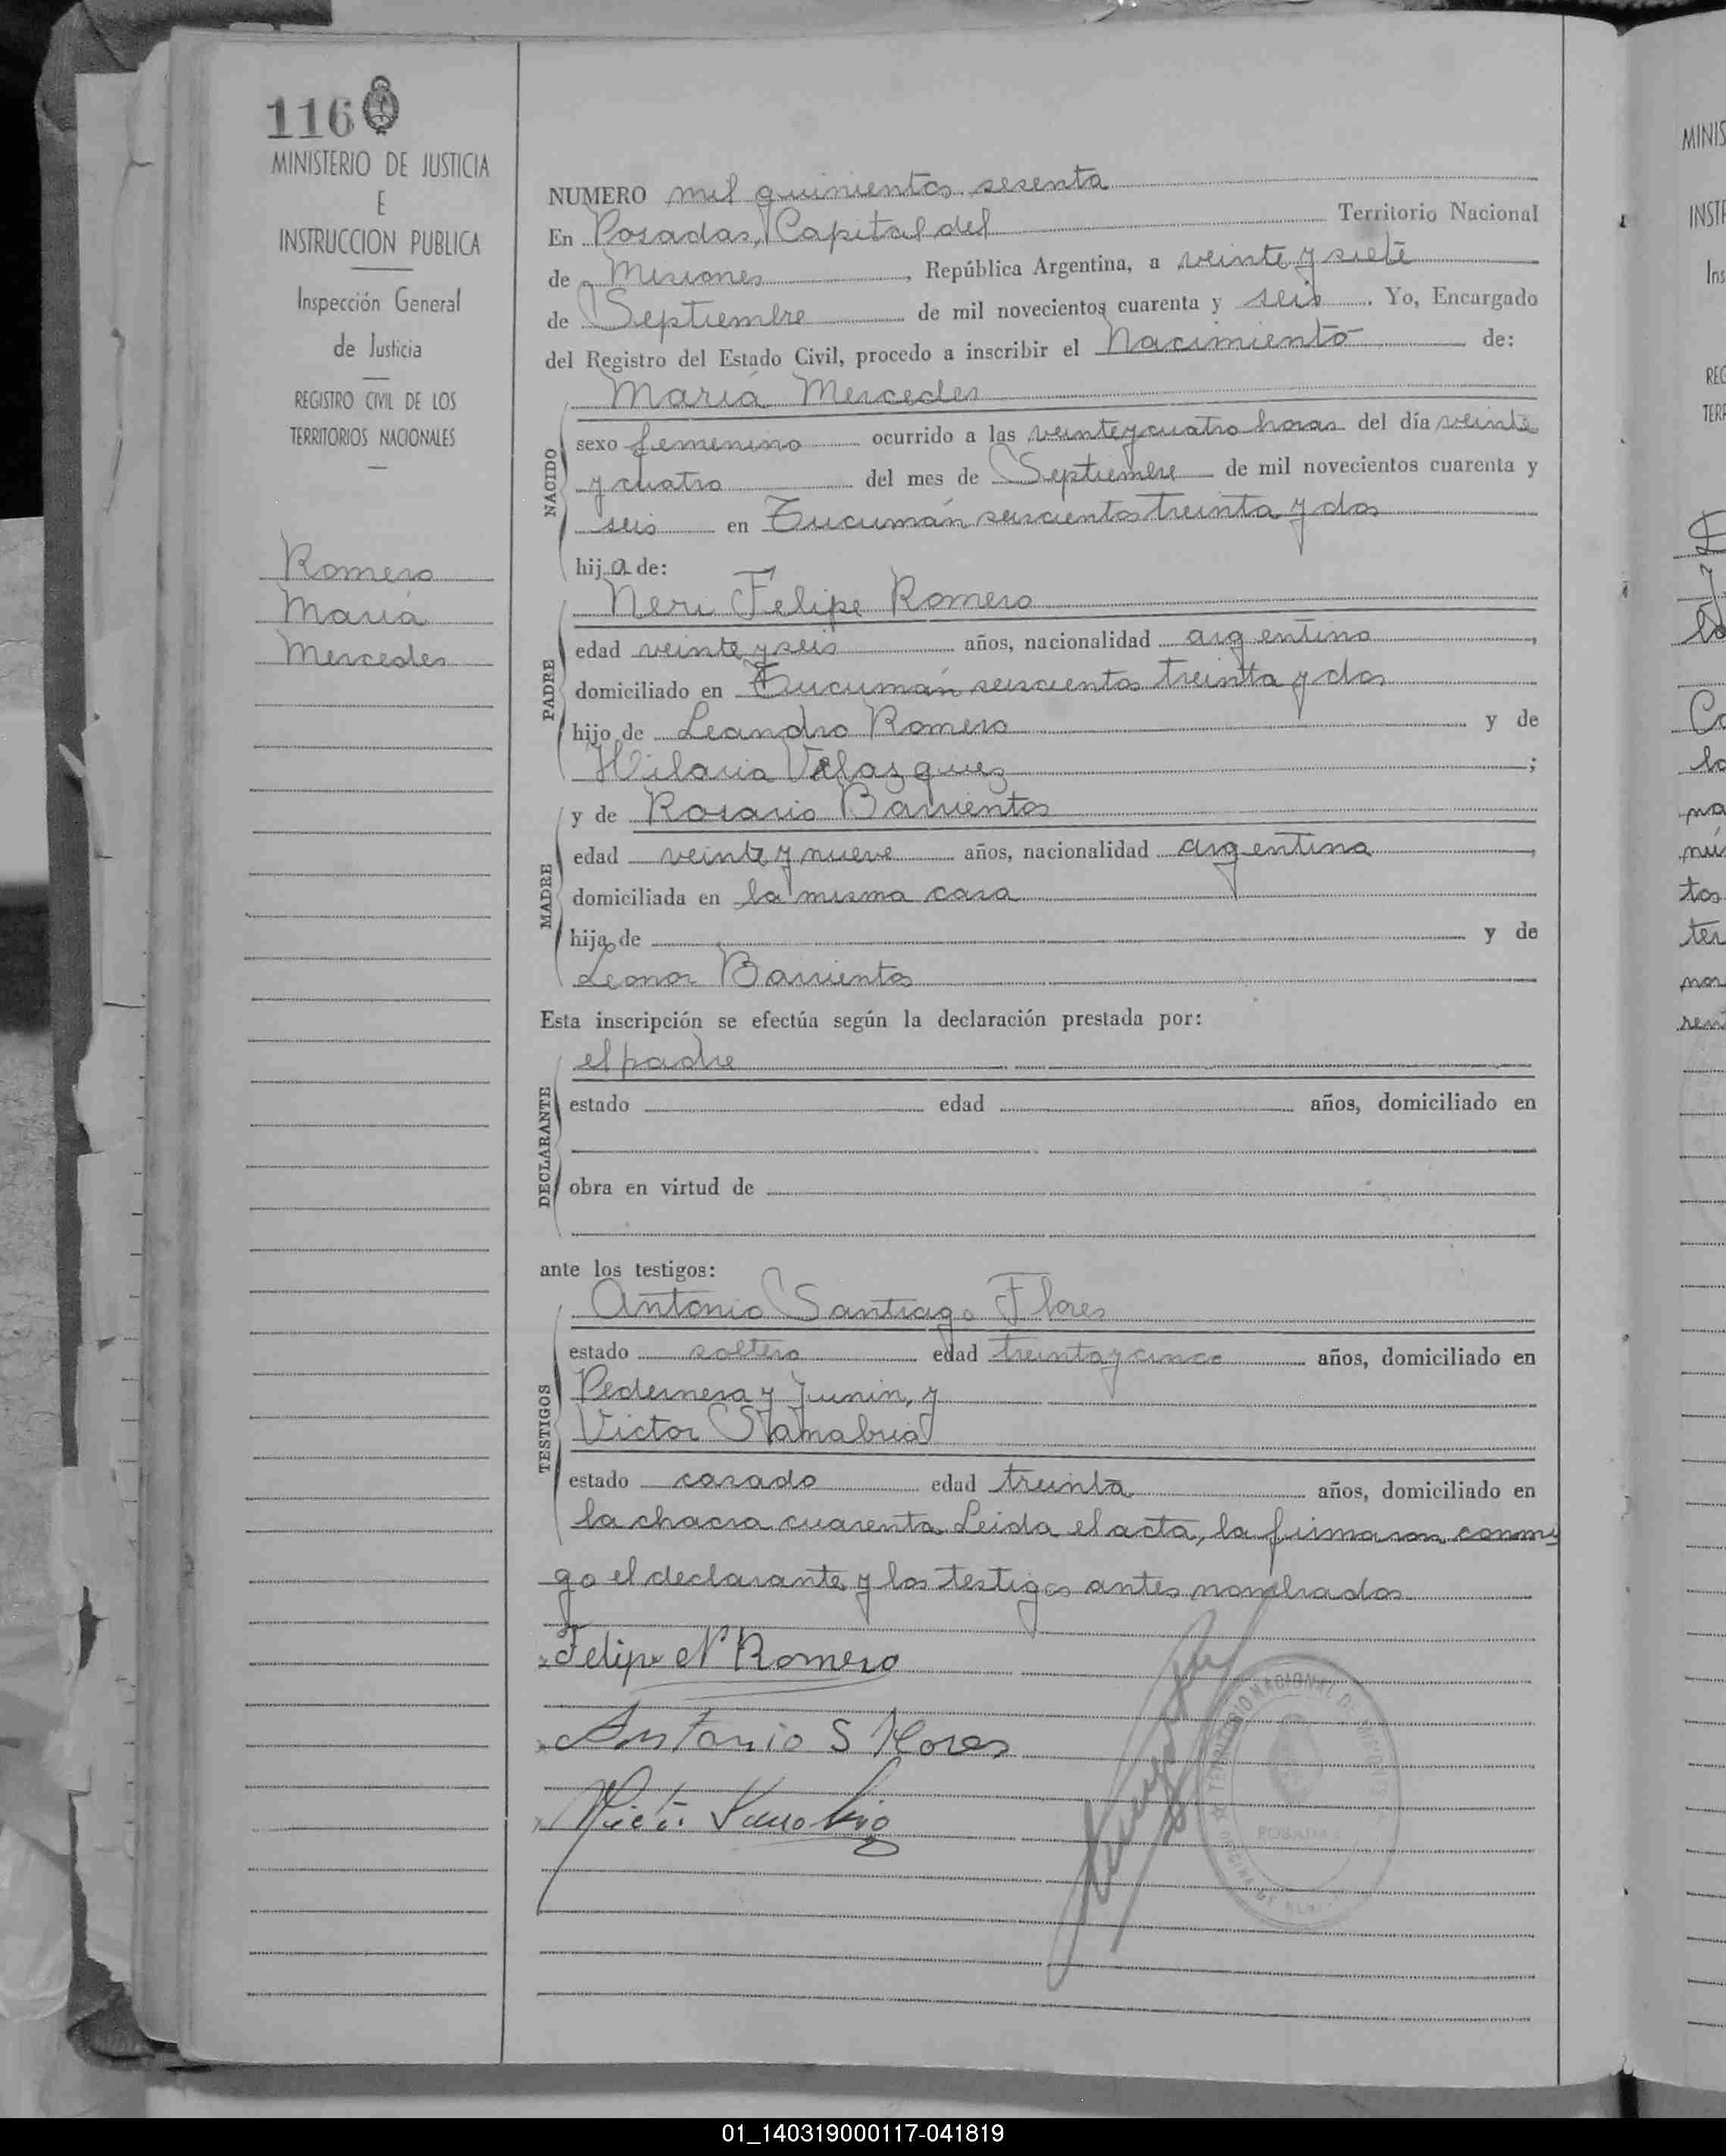 116
MINISTERIO DE JUSTICIA
E
INSTRUCCION PUBLICA
Inspección General
de Justicia
REGISTRO CIVIL DE LOS
TERRITORIOS NACIONALES
Romero
María
Mercedes
NUMERO mil quinientos sesenta
En Posadas, Capital del Territorio Nacional
de Misiones, República Argentina, a veinte y siete
de Septiembre de mil novecientos cuarenta y seis. Yo, Encargado
del Registro del Estado Civil, procedo a inscribir el Nacimiento de:
NACIDO
María Mercedes
sexo femenino ocurrido a las veinte y cuatro horas del día veinte
y cuatro del mes de Septiembre de mil novecientos cuarenta y
seis en Tucumán seiscientos treinta y dos
hija de:
PADRE
Neri Felipe Romero
edad veinte y seis años, nacionalidad argentino,
domiciliado en Tucumán seiscientos treinta y dos
hijo de Leandro Romero y de
Hilaria Velazquez;
MADRE
y de Rosario Barrientos
edad veinte y nueve años, nacionalidad argentina,
domiciliada en la misma casa
hija de y de
Leonor Barrientos
Esta inscripción se efectúa según la declaración prestada por:
DECLARANTE
el padre
estado edad años, domiciliado en
obra en virtud de
ante los testigos:
TESTIGOS
Antonio Santiago Flores
estado soltero edad treinta y cinco años, domiciliado en
Pedernera y Junin, y
Victor Sanabria
estado casado edad treinta años, domiciliado en
la chacra cuarenta. Leida el acta, la firmaron conmi
go el declarante y los testigos antes nombrados
Felipe N Romero
Antonio S Flores
Victor Sanabria
TERRITORIO NACIONAL DE MISIONES
POSADAS
MINIS
INSTR
Ins
REG
TERR
01_140319000117-041819